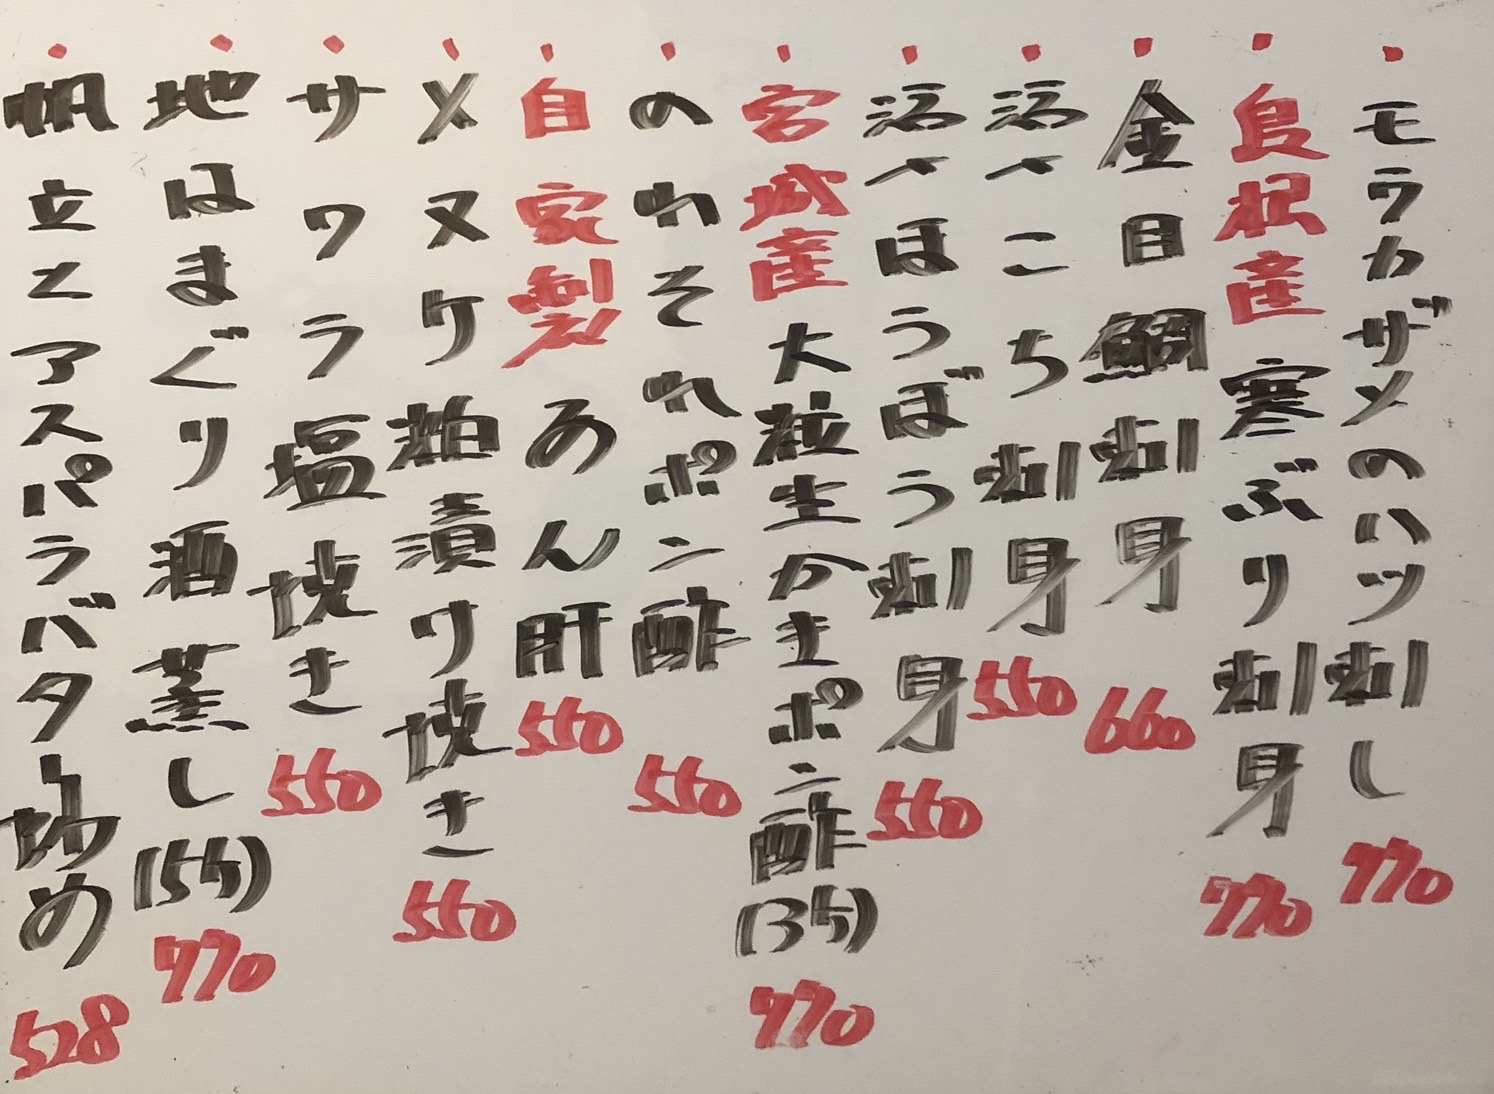 モウカザメのハツ刺し 770
島根産寒ぶり刺身 770
金目鯛刺身 660
活〆こち刺身 550
活〆ほうぼう刺身 550
宮城産大粒生かきポン酢(3ケ) 770
のれそれポン酢 550
自家製あん肝 550
メヌケ粕漬け焼き 550
サワラ塩焼き 550
地はまぐり酒蒸し(5ケ) 770
帆立とアスパラバター炒め 528